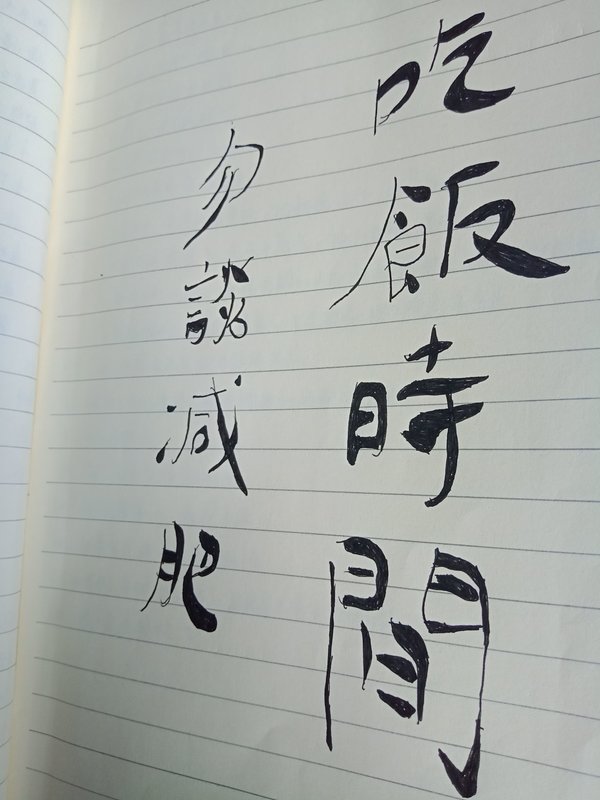 吃飯時間
勿談减肥